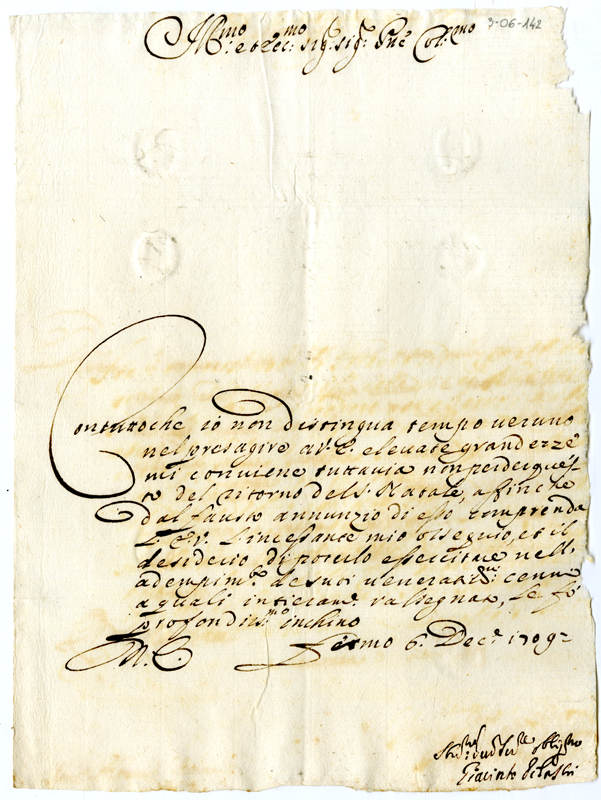 3-06-142
Ill:mo et Ecc:mo Sig:r Sig:r Prne Col:mo
Contutoche io non distingua tempo veruno
nel presagire a V.E. elevate grandezze
mi conviene tuttavia non perder ques-
to del ritorno del S. Natale, affinche
dal fausto annunzio di esso comprenda
l'E.V. l'incessante mio ossequio, et il
desiderio di poterlo essercitare nell'
adempim:to de suoi veneratis:mi cenni
a quali intieram:e rassegnato, le fò
profondis:mo inchino
V.E. Fermo 6: Dec:e 1709
Giacinto